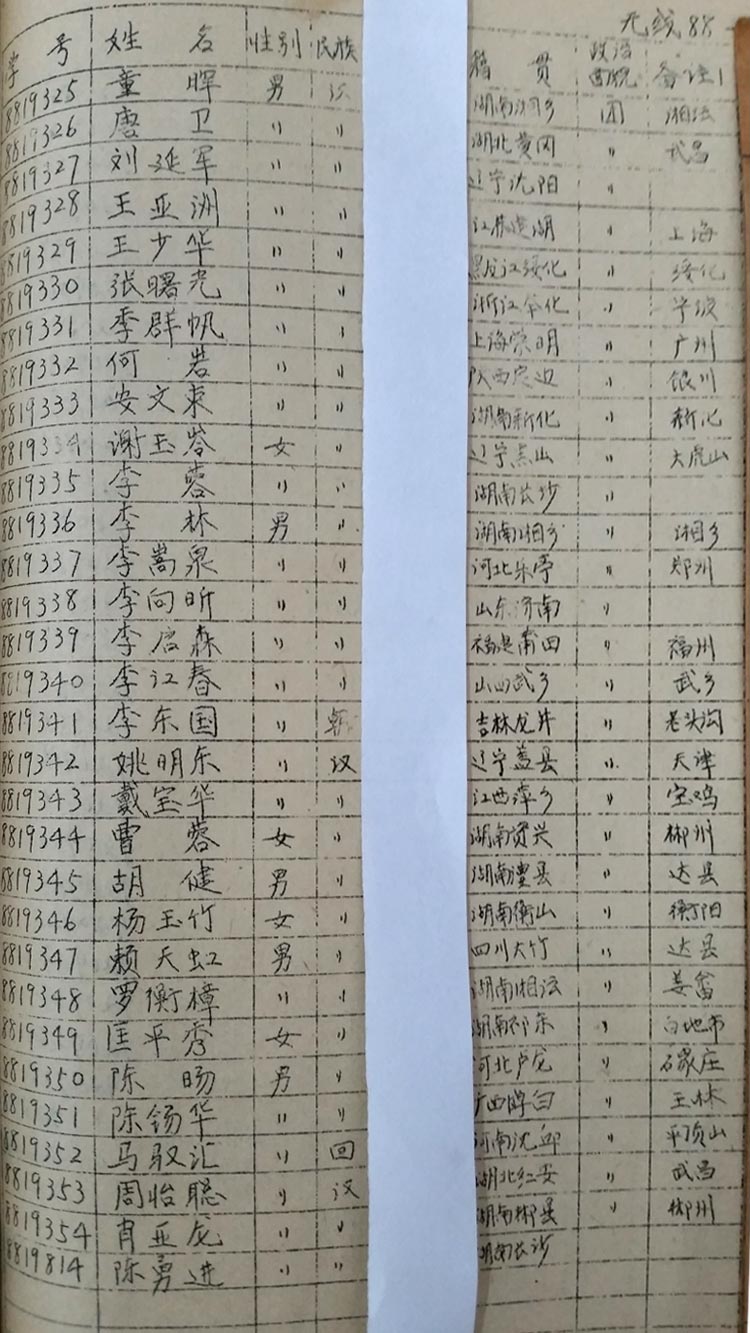 无线88-
学号 姓名 性别 民族 籍贯 政治面貌 备注1
8819325 童晖 男 汉 湖南湘乡 团 湘潭
8819326 唐卫 〃 〃 湖北黄冈 〃 武昌
8819327 刘延军 〃 〃 辽宁沈阳 〃
8819328 王亚洲 〃 〃 江苏建湖 〃 上海
8819329 王少华 〃 〃 黑龙江绥化 〃 绥化
8819330 张曙光 〃 〃 浙江奉化 〃 宁波
8819331 李群帆 〃 〃 上海崇明 〃 广州
8819332 何岩 〃 〃 陕西定边 〃 银川
8819333 安文束 〃 〃 湖南新化 〃 新化
8819334 谢玉岺 女 〃 辽宁黑山 〃 大虎山
8819335 李蓉 〃 〃 湖南长沙 〃
8819336 李林 男 〃 湖南湘乡 〃 湘乡
8819337 李嵩泉 〃 〃 河北乐亭 〃 郑州
8819338 李向昕 〃 〃 山东济南 〃
8819339 李启森 〃 〃 福建莆田 〃 福州
8819340 李江春 〃 〃 山西武乡 〃 武乡
8819341 李东国 〃 朝 吉林龙井 〃 老头沟
8819342 姚明东 〃 汉 辽宁盖县 〃 天津
8819343 戴宝华 〃 〃 江西萍乡 〃 宝鸡
8819344 曹蓉 女 〃 湖南资兴 〃 郴州
8819345 胡健 男 〃 湖南澧县 〃 达县
8819346 杨玉竹 女 〃 湖南衡山 〃 衡阳
8819347 赖天虹 男 〃 四川大竹 〃 达县
8819348 罗衡樟 〃 〃 湖南湘潭 〃 姜畲
8819349 匡平秀 女 〃 湖南祁东 〃 白地市
8819350 陈旸 男 〃 河北卢龙 〃 石家庄
8819351 陈钖华 〃 〃 广西博白 〃 玉林
8819352 马驭汇 〃 回 河南沈邱 〃 平顶山
8819353 周怡聪 〃 汉 湖北红安 〃 武昌
8819354 肖亚龙 〃 〃 湖南郴县 〃 郴州
8819814 陈勇进 〃 〃 湖南长沙